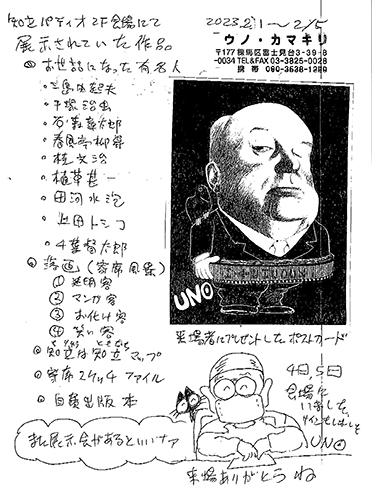 知立パティオ2F会場にて
展示されていた作品
2023.2.1〜2/5
ウノ・カマキリ
〒177 練馬区富士見台3-39-8
-0034 TEL&FAX 03-3825-0028
携帯 090-3538-1289
◎お世話になった有名人
・三島由起夫
・手塚治虫
・石ノ森章太郎
・春風亭柳昇
・桂文治
・植草甚一
・田河水泡
・上田トシコ
・千葉督太郎
◎漫画(寄席風景)
① 透明客
② マンガ客
③ お化け客
④ 笑い客
◎知立は知立マップ
◎寄席スケッチファイル
◎自積出版本
UNO
来場者にプレゼントしたポストカード
4日,5日
会場に
いました。
UNO
また展示会があるといいナァ
来場ありがとうね